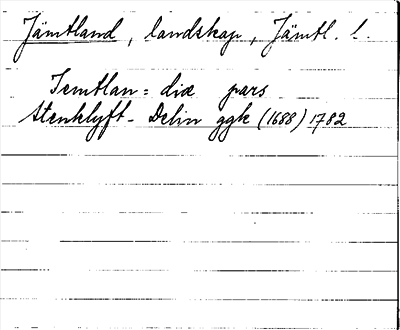 Jämtland, landskap, Jämtl. l.
Iemtlan= diæ pars
Stenklyft- Delin ggk (1688) 1782